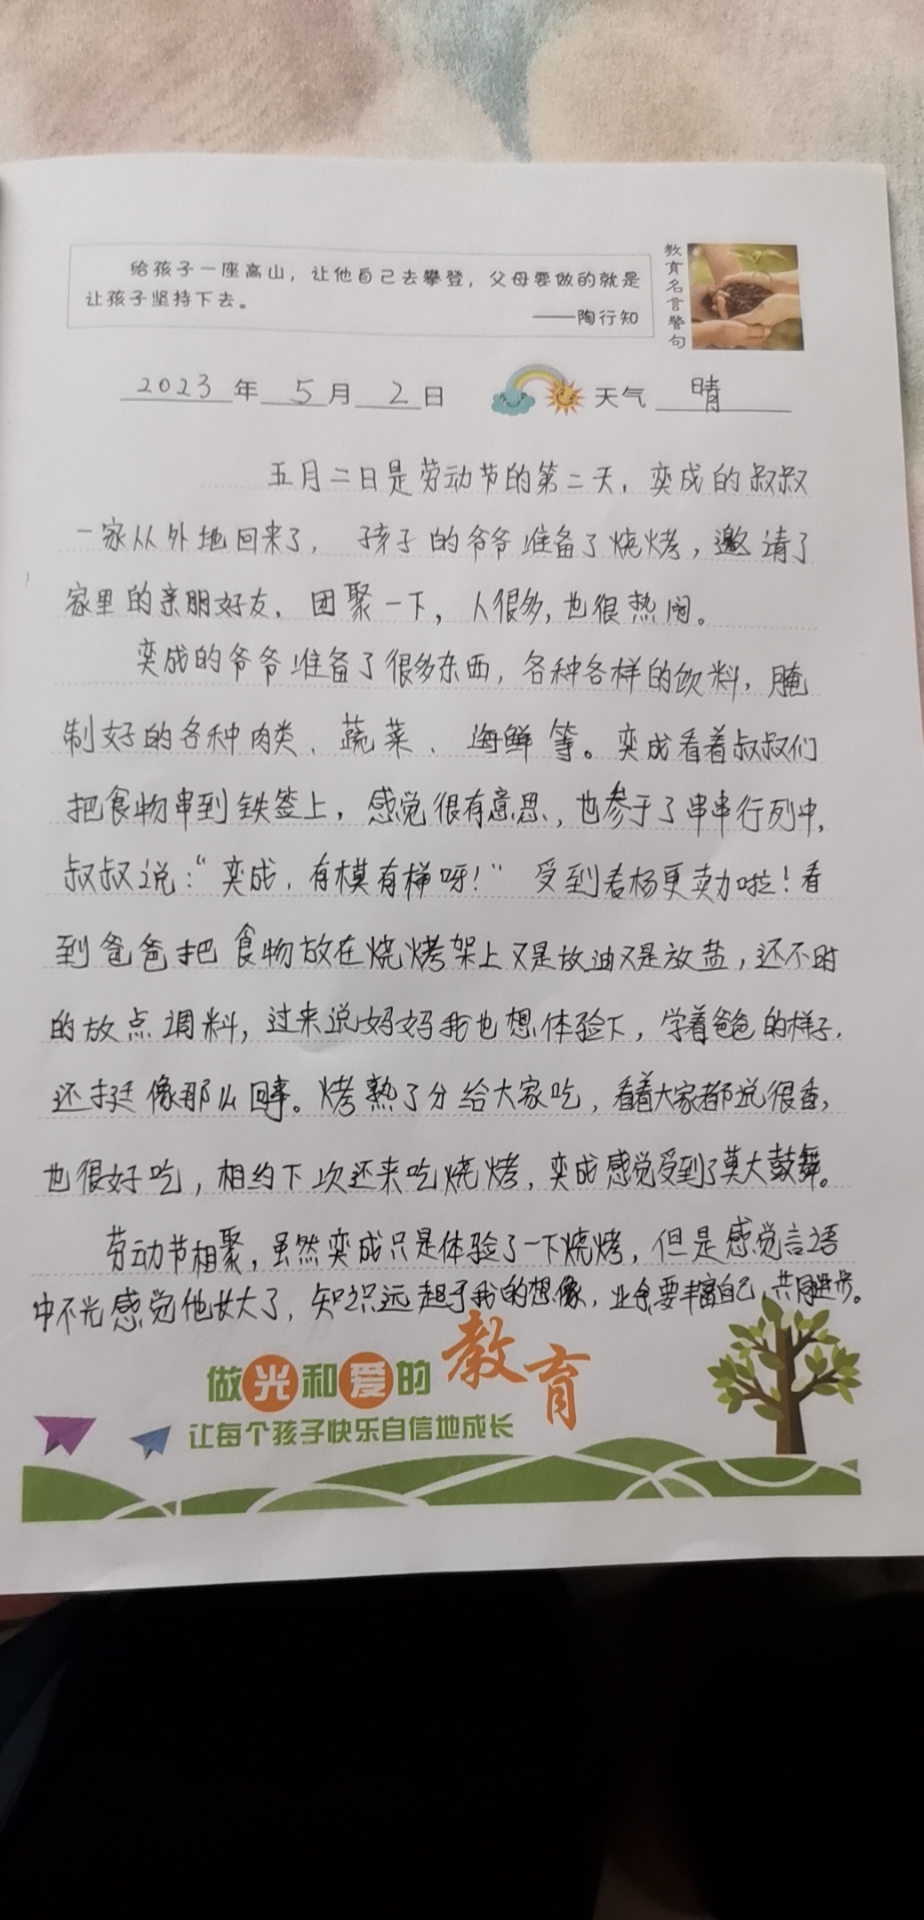 给孩子一座高山，让他自己去攀登，父母要做的就是
让孩子坚持下去。
——陶行知
教育名言警句
2023年 5月 2日 天气 晴
五月二日是劳动节的第二天，奕成的叔叔
一家从外地回来了，孩子的爷爷准备了烧烤，邀请了
家里的亲朋好友，团聚一下，人很多，也很热闹。
奕成的爷爷准备了很多东西，各种各样的饮料，腌
制好的各种肉类、蔬菜、海鲜等。奕成看着叔叔们
把食物串到铁签上，感觉很有意思，也参于了串串行列中，
叔叔说：“奕成，有模有样呀！”受到表扬更卖力啦！看
到爸爸把食物放在烧烤架上又是放油又是放盐，还不时
的放点调料，过来说妈妈我也想体验下，学着爸爸的样子，
还挺像那么回事。烤熟了分给大家吃，看着大家都说很香，
也很好吃，相约下次还来吃烧烤，奕成感觉受到了莫大鼓舞。
劳动节相聚，虽然奕成只是体验了一下烧烤，但是感觉言语
中不光感觉他长大了，知识远超于我的想像，业余要丰富自己，共同进步。
做光和爱的教育
让每个孩子快乐自信地成长